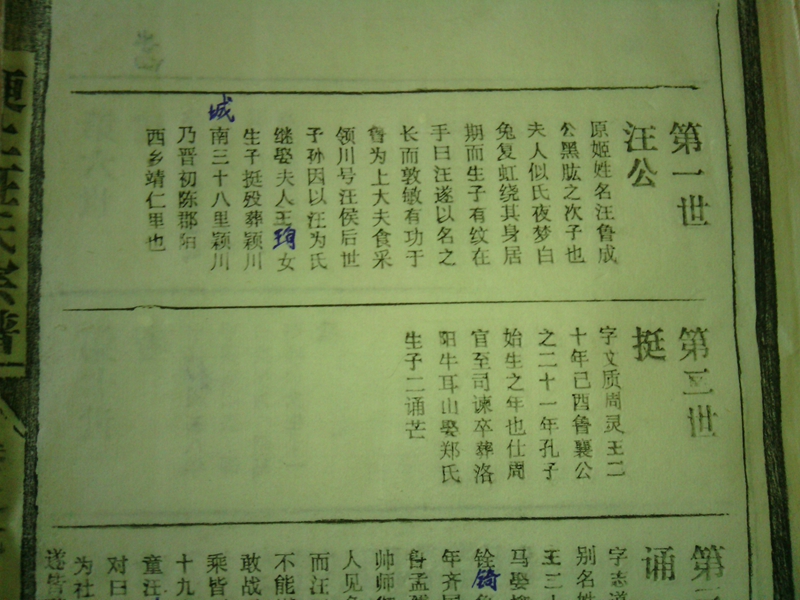 第一世
汪公
原姬姓名汪鲁成
公黑肱之次子也
夫人似氏夜梦白
兔复虹绕其身居
期而生子有纹在
手曰汪遂以名之
长而敦敏有功于
鲁为上大夫食采
领川号汪侯后世
子孙因以汪为氏
继娶夫人王珣女
生子挺殁葬颖川
城南三十八里颖川
乃晋初陈郡
西乡靖仁里也
第二世
挺
字文质周灵王二
十年己酉鲁襄公
之二十一年孔子
始生之年也仕周
官至司谏卒葬洛
阳牛耳山娶郑氏
生子二诵芒
第
诵
字志道
别名姓
王二
马娶
铨锜
年齐
鲁孟
帅师
人见
而汪
不能
敢战
乘皆
十九
童汪
对曰
为社
遂
汪氏宗谱